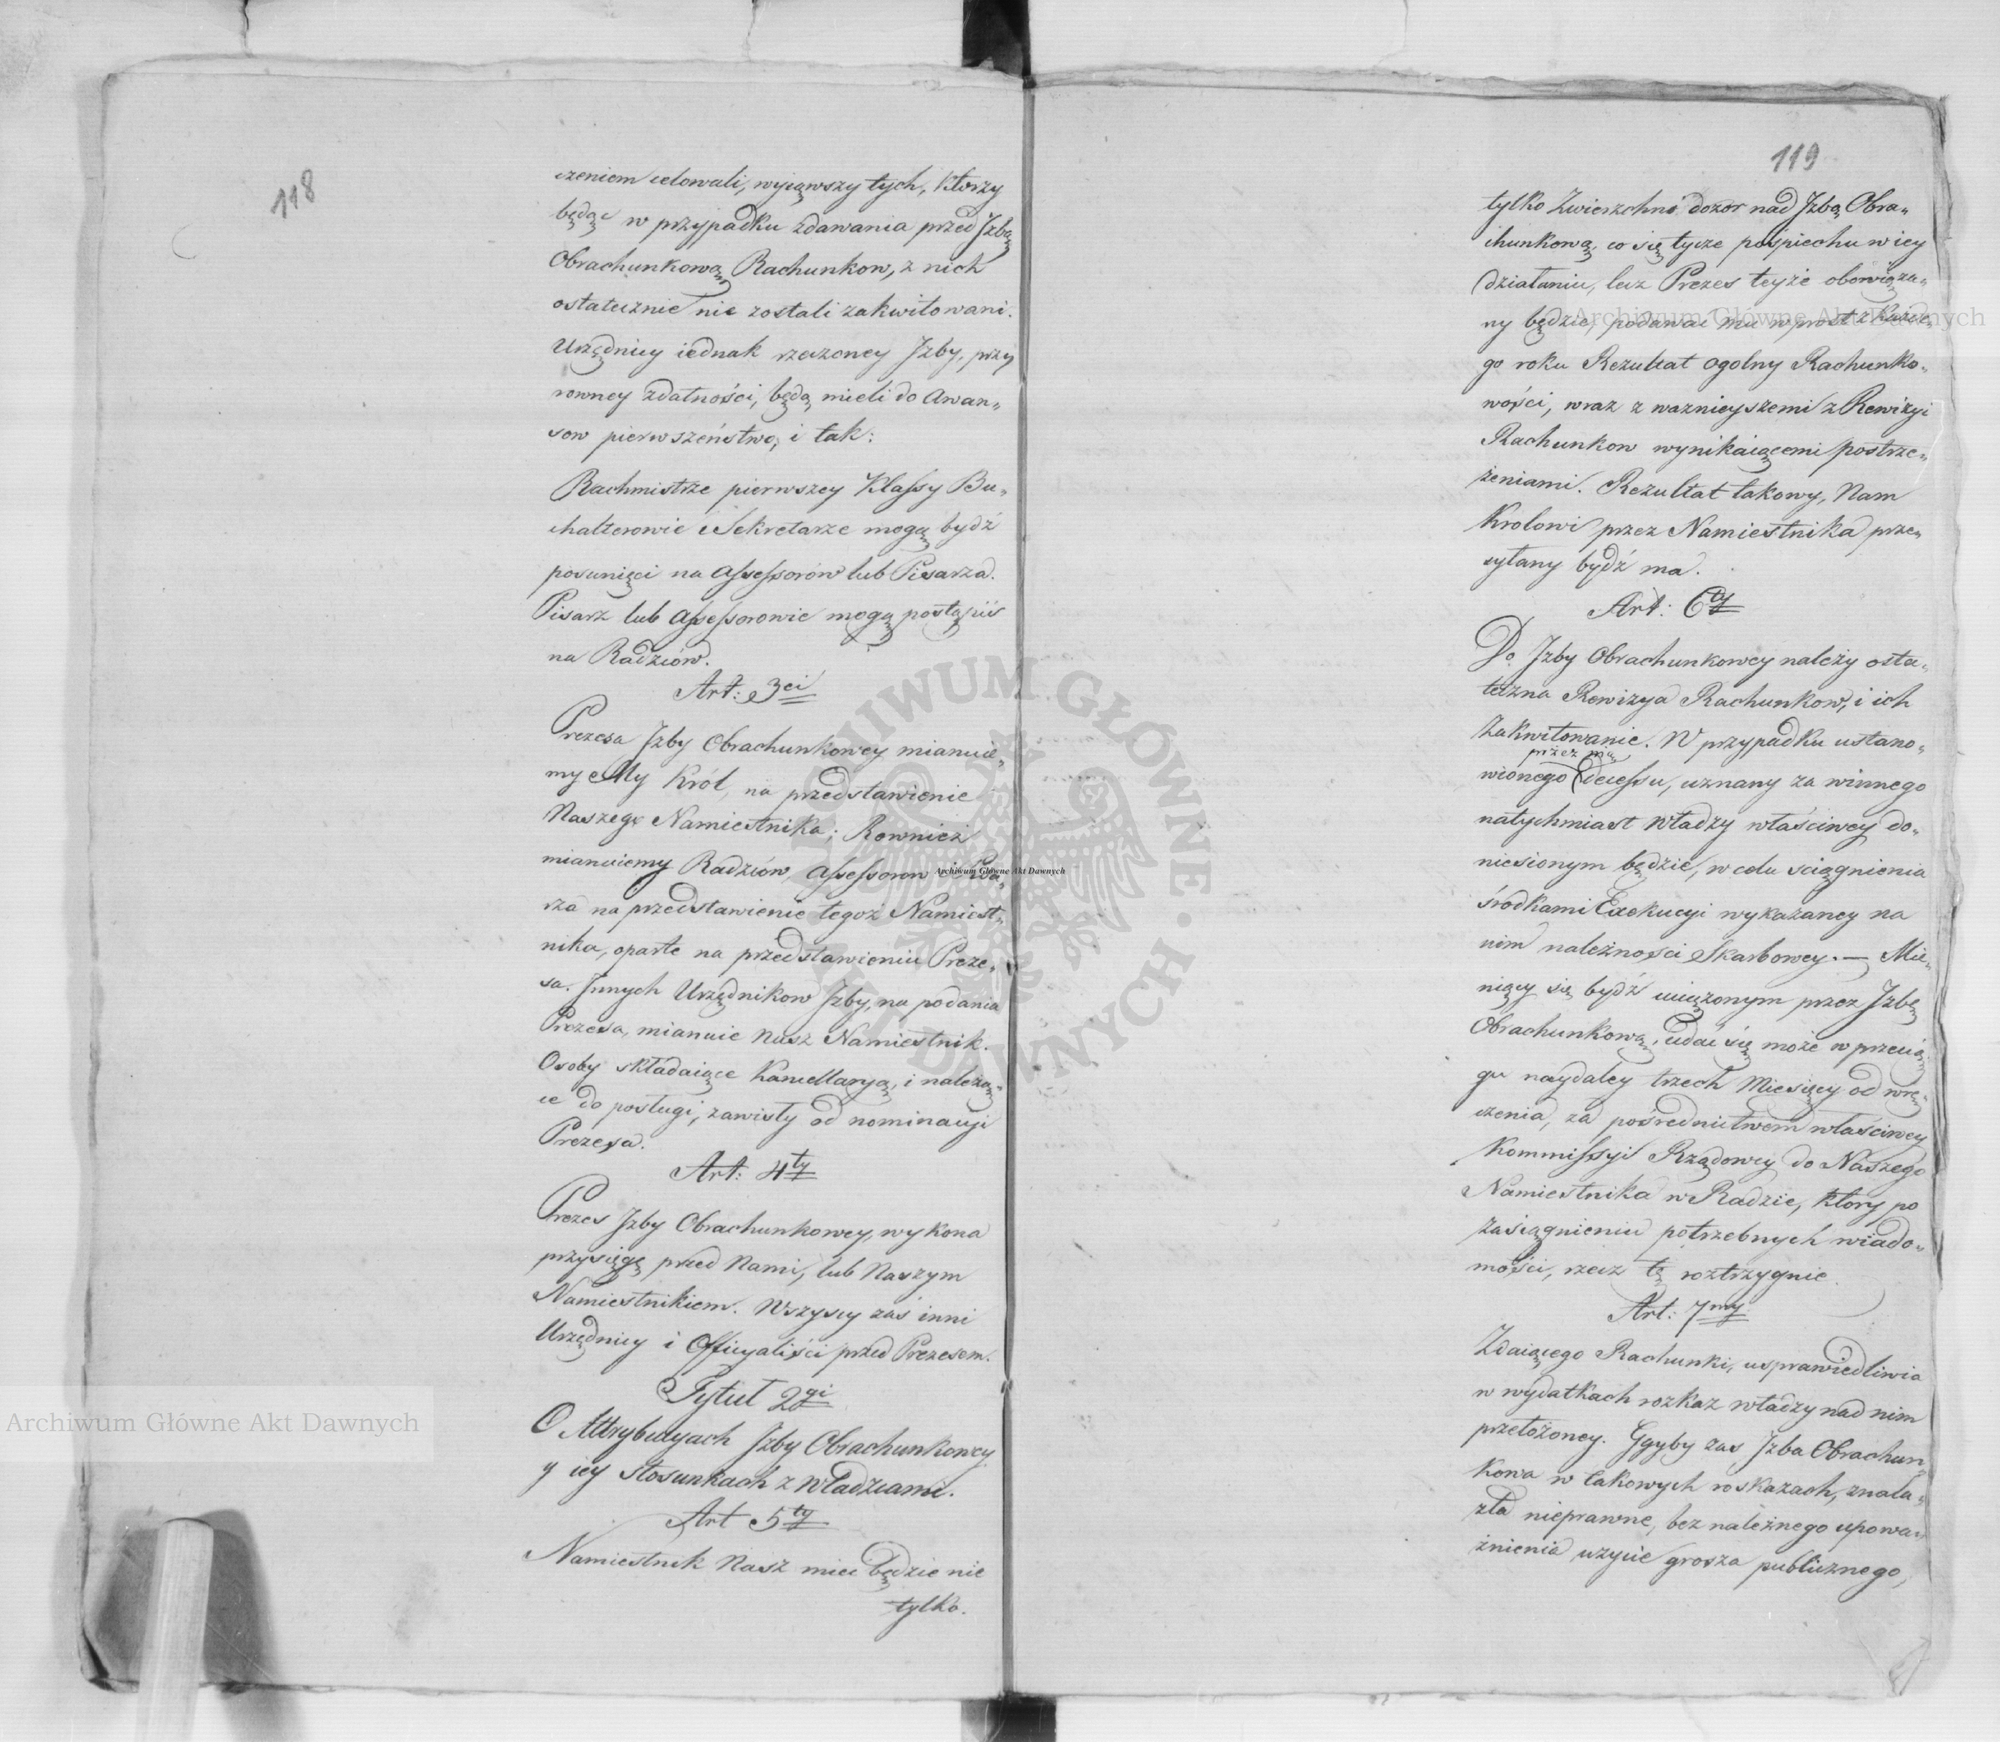 118
czeniem celowali, wyiąwszy tych, którzy
będąc w przypadku zdawania przed Jzbą
Obrachunkową Rachunkow, z nich
ostatecznie nie zostali zakwitowani.
Urzędnicy iednak rzeczoney Jzby, przy
rowney zdatności, będą mieli do Awan„
sow pierwszeństwo, i tak:
Rachmistrze pierwszey Klassy Bu„
chalterowie i Sekretarze mogą bydź
posunięci na Assessorów lub Pisarza.
Pisarz lub Assessorowie mogą postąpić
na Radzców.
Art: 3ci
Prezesa Jzby Obrachunkowey mianuie„
my My Król, na przedstawienie
Naszego Namiestnika; Rownież
mianuiemy Radzców, Assessorow i Pisa„
rza na przedstawienie tegoż Namiest„
nika, oparte na przedstawieniu Preze„
sa. Jnnych Urzędnikow Jzby, na podania
Prezesa, mianuie Nasz Namiestnik.
Osoby składaiące Kancellaryą, i należą„
ce do posługi, zawisły od nominacyi
Prezesa.
Art: 4ty
Prezes Jzby Obrachunkowey, wykona
przysięgę przed Nami, lub Naszym
Namiestnikiem. Wszyscy zaś inni
Urzędnicy i Officyaliści przed Prezesem.
Tytuł 2gi
O Attrybucyach Jzby Obrachunkowey
y iey stosunkach z Władzami.
Art 5ty
Namiestnik Nasz mieć będzie nie
tylko.
119
tylko Zwierzchni dozor nad Jzbą Obra„
chunkową, co się tycze pośpiechu w iey
działaniu, lecz Prezes teyże obowiąza„
ny będzie, podawać mu wprost z każde„
go roku Rezultat ogolny Rachunko„
wości, wraz z waznieyszemi z Rewizyi
Rachunkow wynikaiącemi postrze„
żeniami. Rezultat takowy, Nam
Krolowi przez Namiestnika prze„
syłany bydź ma.
Art: 6ty
Do Jzby Obrachunkowey należy osta„
teczna Rewizya Rachunkow, i ich
Zakwitowanie. W przypadku ustano„
przez nią
wionego decessu, uznany za winnego
natychmiast Władzy właściwey do„
niesionym będzie, w celu sciągnienia
środkami Exekucyi wykazaney na
nim należności Skarbowey. — Mie„
niący się bydź uciążonym przez Jzbę
Obrachunkową, udać się może w przecią„
gu naydaley trzech Miesięcy od wrę„
czenia, za pośrednictwem właściwey
Kommissyi Rządowey do Naszego
Namiestnika w Radzie, który po
zasiągnieniu potrzebnych wiado„
mości, rzecz tę roztrzygnie.
Art: 7my
Zdaiącego Rachunki, usprawiedliwia
w wydatkach rozkaz władzy nad nim
przełożoney. Gdyby zas Jzba Obrachun„
kowa w takowych roskazach, znala„
zła nieprawne, bez należnego upowa„
żnienia uzycie grosza publicznego,
Archiwum Główne Akt Dawnych
Archiwum Główne Akt Dawnych
Archiwum Główne Akt Dawnych
ARCHIWUM GŁÓWNE · AKT DAWNYCH ·